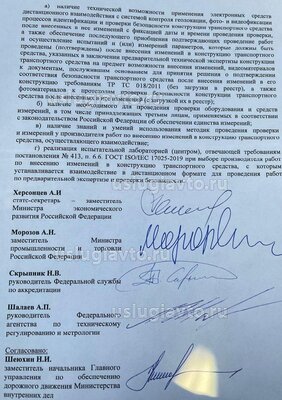 а) наличие технической возможности применения электронных средств
дистанционного взаимодействия с системой геолокации, фото- и видеофиксации
процессов идентификации и проверки безопасности конструкции транспортного средства
после внесенных в нее изменений с фиксацией даты и времени проведения проверки,
а также обеспечение последующего приобщения подтверждающих проведение работ
по осуществлению испытаний и (или) измерений параметров, которые должны быть
проведены (подтверждены) после внесения изменений в конструкцию транспортного
средства, указанных в заключении предварительной технической экспертизы конструкции
транспортного средства на предмет возможности внесения изменений, видеоматериалов
к документам, послужившим основанием для принятия решения о подтверждении
соответствия безопасности транспортного средства после внесения изменений в его
конструкцию требованиям ТР ТС 018/2011 (без загрузки в реестр), а также
фотоматериалов к протоколам проверки безопасности конструкции транспортного
средства после внесенных изменений (с загрузкой их в реестр);
б) наличие необходимого для проведения проверки оборудования и средств
измерений, в том числе принадлежащих третьим лицам, применяемых в соответствии
с законодательством Российской Федерации об обеспечении единства измерений;
в) наличие знаний и умений использования методик проведения проверки
и измерений у производителя работ по внесению изменений в конструкцию транспортного
средства, осуществляющего взаимодействие;
г) реализация испытательной лабораторией (центром), отвечающей требованиям
постановления № 413, п. 6.6 ГОСТ ISO/IEC 17025-2019 при выборе производителя работ
по внесению изменений в конструкцию транспортного средства, с которым
устанавливается взаимодействие в дистанционном формате для проведения работ
по предварительной экспертизе и проверки безопасности.
Херсонцев А.И
стате-секретарь – заместитель
Министра экономического
развития Российской Федерации
Морозов А.Н.
заместитель Министра
промышленности и торговли
Российской Федерации
Скрыпник Н.В.
руководитель Федеральной службы
по аккредитации
Шалаев А.П.
руководитель Федерального
агентства по техническому
регулированию и метрологии
Согласовано:
Шеюхин Н.И.
заместитель начальника Главного
управления по обеспечению
дорожного движения Министерства
внутренних дел
uslugiavto.ru
uslugiavto.ru
uslugiavto.ru